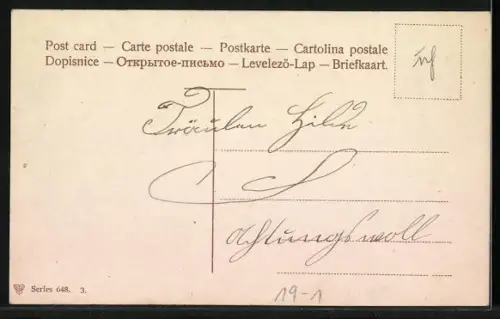 Post card — Carte postale — Postkarte — Cartolina postale
Dopisnice — Открытое-письмо — Levelező-Lap — Briefkaart.
Fräulein Hilde
S
Achtungsvoll
Series 648. 3.
19-1